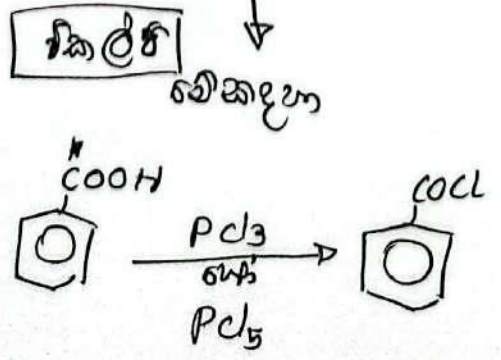 විකල්ප
මේසඳහා
COOH
PCl3
හෝ
PCl5
COCl